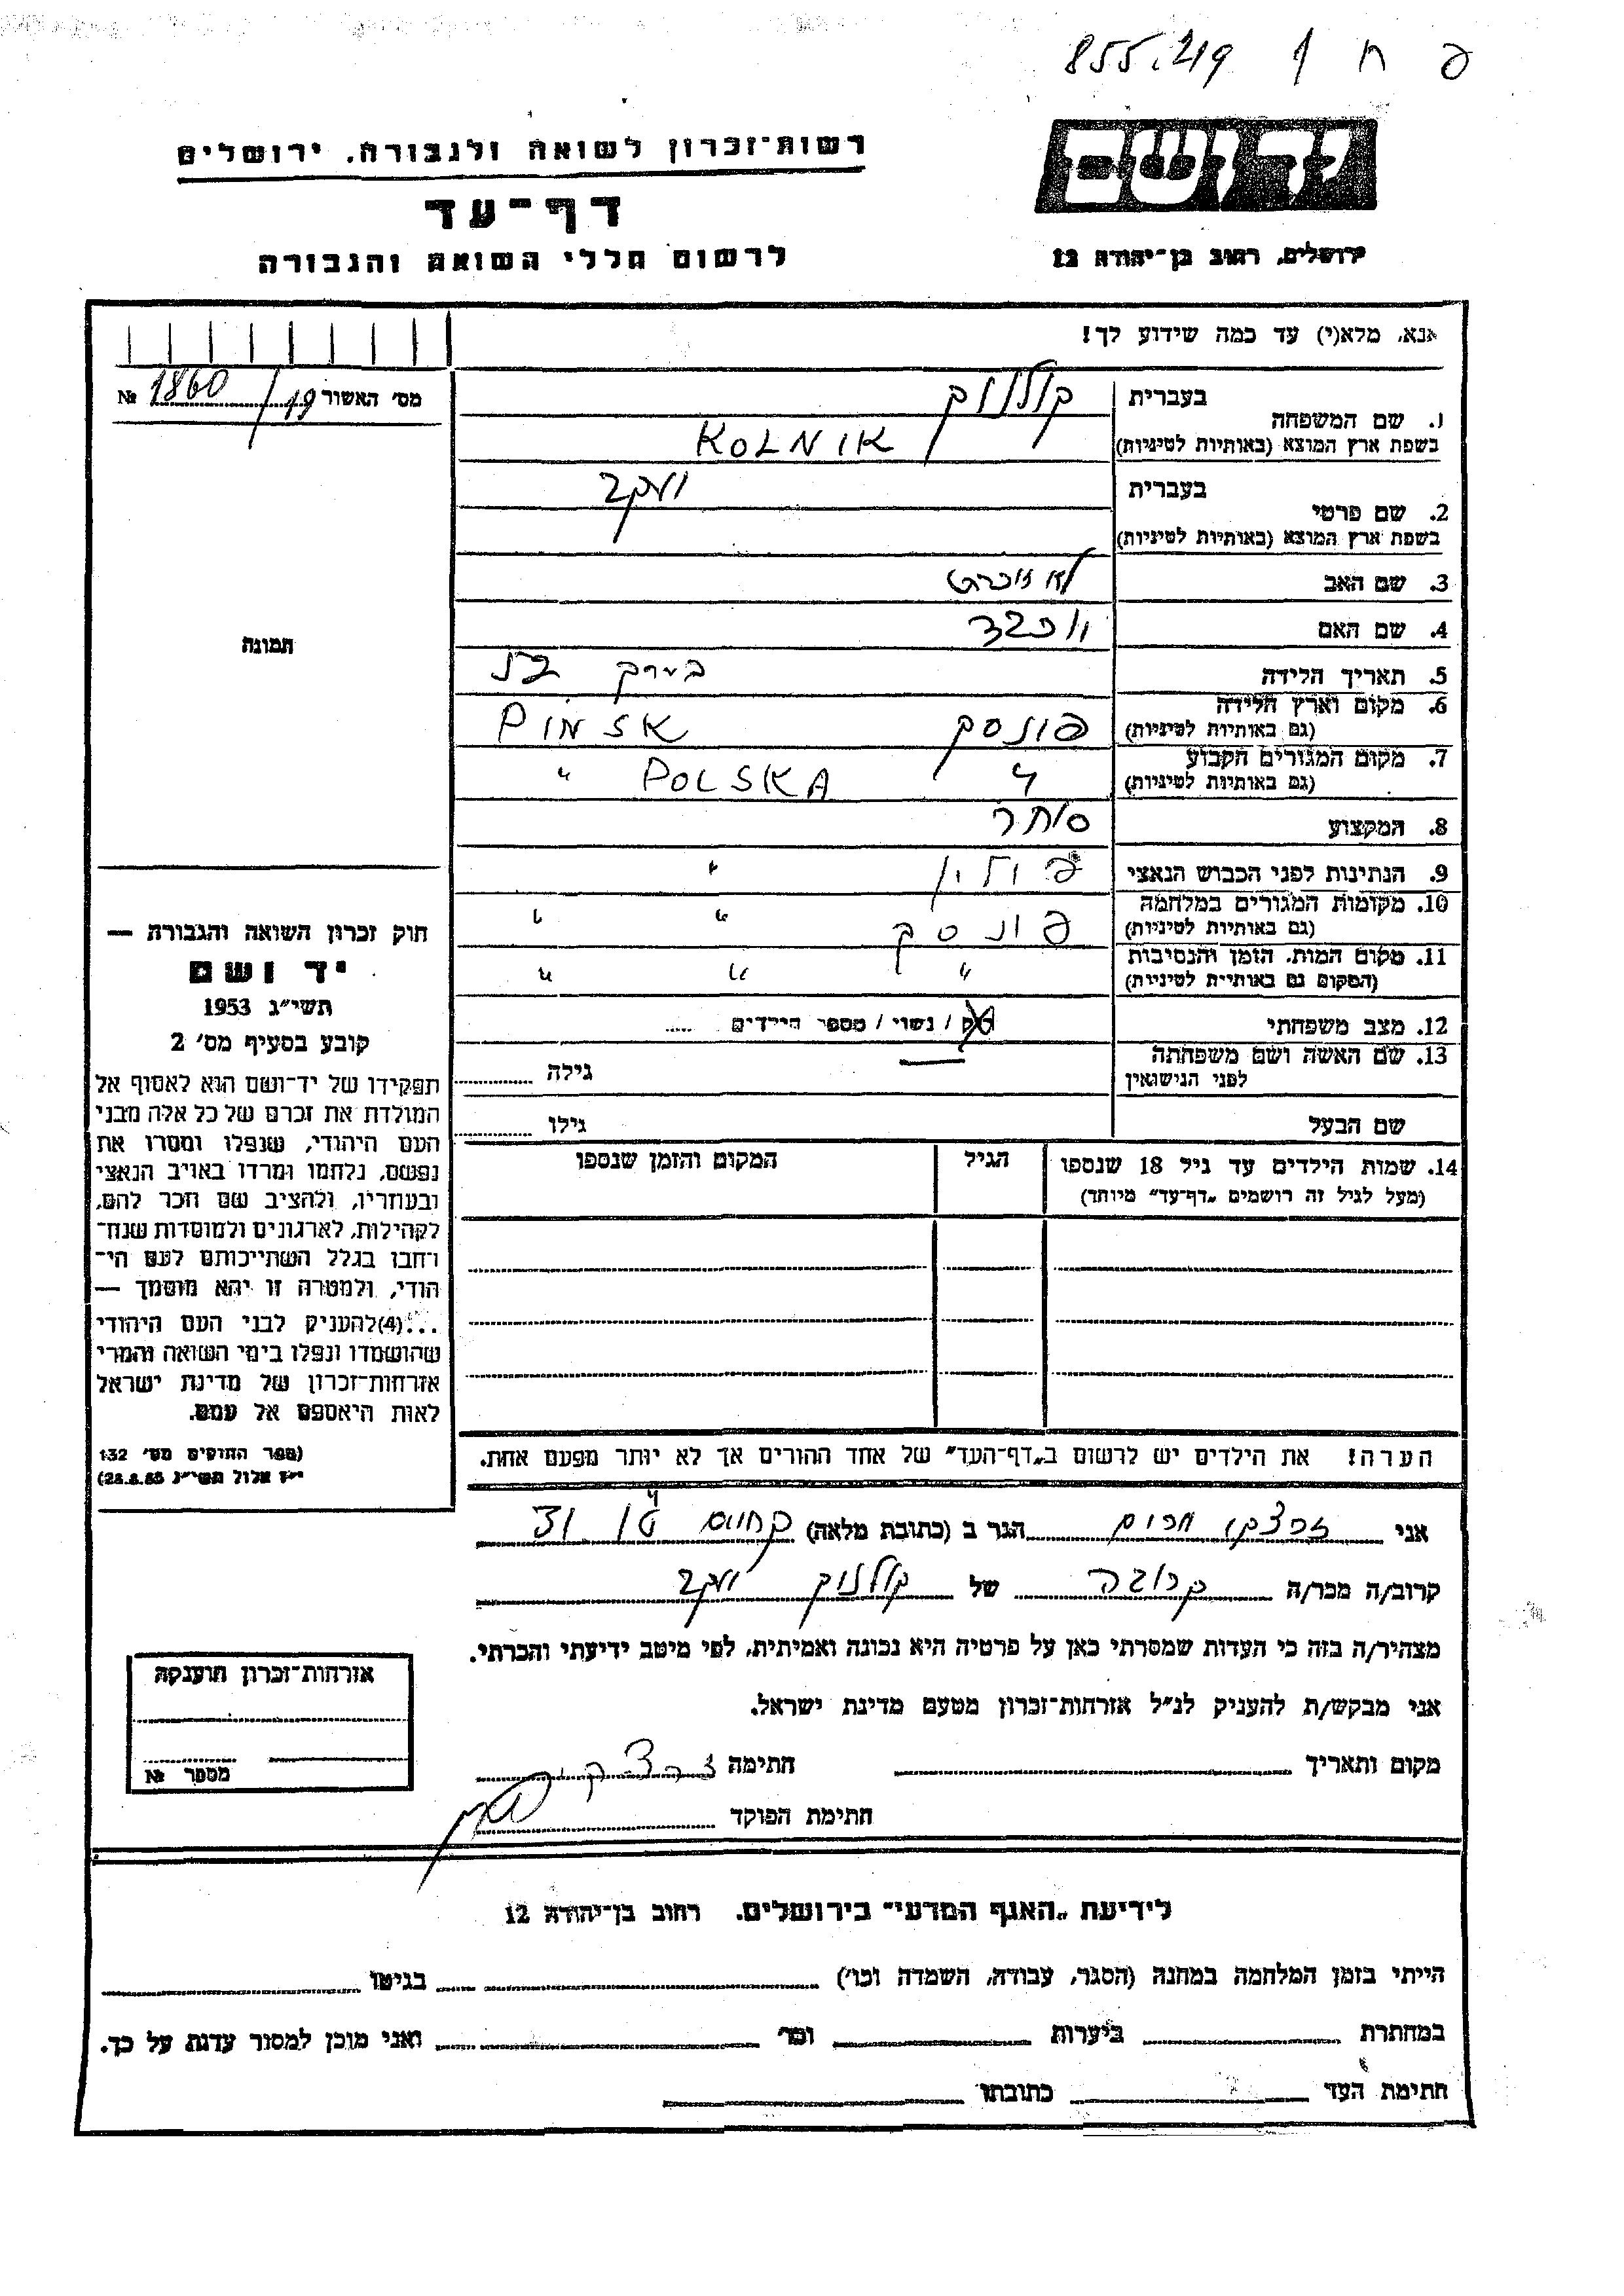 855.219 1 ח פ
יד ושם
ירושלים, רחוב בן־יהודה 12
רשות־זכרון לשואה ולגבורה, ירושלים
דף־עד
לרשום חללי השואה והגבורה
אנא, מלא(י) עד כמה שידוע לך!
מס׳ האשור 19/1860 №
1. שם המשפחה
בעברית קולניק
בשפת ארץ המוצא (באותיות לטיניות) KOLNIK
2. שם פרטי
בעברית יעקב
בשפת ארץ המוצא (באותיות לטיניות)
3. שם האב
4. שם האם יוכבד
5. תאריך הלידה בערך
6. מקום וארץ הלידה (גם באותיות לטיניות) פינסק PINSK
7. מקום המגורים הקבוע (גם באותיות לטיניות) " POLSKA "
8. המקצוע סוחר
9. הנתינות לפני הכבוש הנאצי פולין "
10. מקומות המגורים במלחמה (גם באותיות לטיניות) פינסק " "
11. מקום המות, הזמן והנסיבות (המקום גם באותיית לטיניות) " " "
12. מצב משפחתי רווק / נשוי / מספר הילדים .....
13. שם האשה ושם משפחתה לפני הנישואין — גילה
שם הבעל גילו
14. שמות הילדים עד גיל 18 שנספו (מעל לגיל זה רושמים „דף־עד״ מיוחד) הגיל המקום והזמן שנספו
הערה! את הילדים יש לרשום ב„דף־העד״ של אחד ההורים אך לא יותר מפעם אחת.
תמונה
חוק זכרון השואה והגבורה —
יד ושם
תשי״ג 1953
קובע בסעיף מס׳ 2
תפקידו של יד־ושם הוא לאסוף אל
המולדת את זכרם של כל אלה מבני
העם היהודי, שנפלו ומסרו את
נפשם, נלחמו ומרדו באויב הנאצי
ובעוזריו, ולהציב שם וזכר להם,
לקהילות, לארגונים ולמוסדות שנח־
רבו בגלל השתייכותם לעם הי־
הודי, ולמטרה זו יהא מוסמך —
...(4)להעניק לבני העם היהודי
שהושמדו ונפלו בימי השואה והמרי
אזרחות־זכרון של מדינת ישראל
לאות היאספם אל עמם.
(ספר החוקים מס׳ 132
י״ז אלול תשי״ג
אני זרצקי מרים הגר ב (כתובת מלאה) 31
קרוב/ה מכר/ה קרובה של קולניק יעקב
מצהיר/ה בזה כי העדות שמסרתי כאן על פרטיה היא נכונה ואמיתית, לפי מיטב ידיעתי והכרתי.
אני מבקש/ת להעניק לנ״ל אזרחות־זכרון מטעם מדינת ישראל.
מקום ותאריך חתימה זרצקי
חתימת הפוקד
אזרחות־זכרון הוענקה
מספר №
לידיעת „האגף המדעי״ בירושלים, רחוב בן־יהודה 12
הייתי בזמן המלחמה במחנה (הסגר, עבודה, השמדה וכו׳) בגיטו
במחתרת ביערות וכו׳ ואני מוכן למסור עדות על כך.
חתימת העד כתובתו